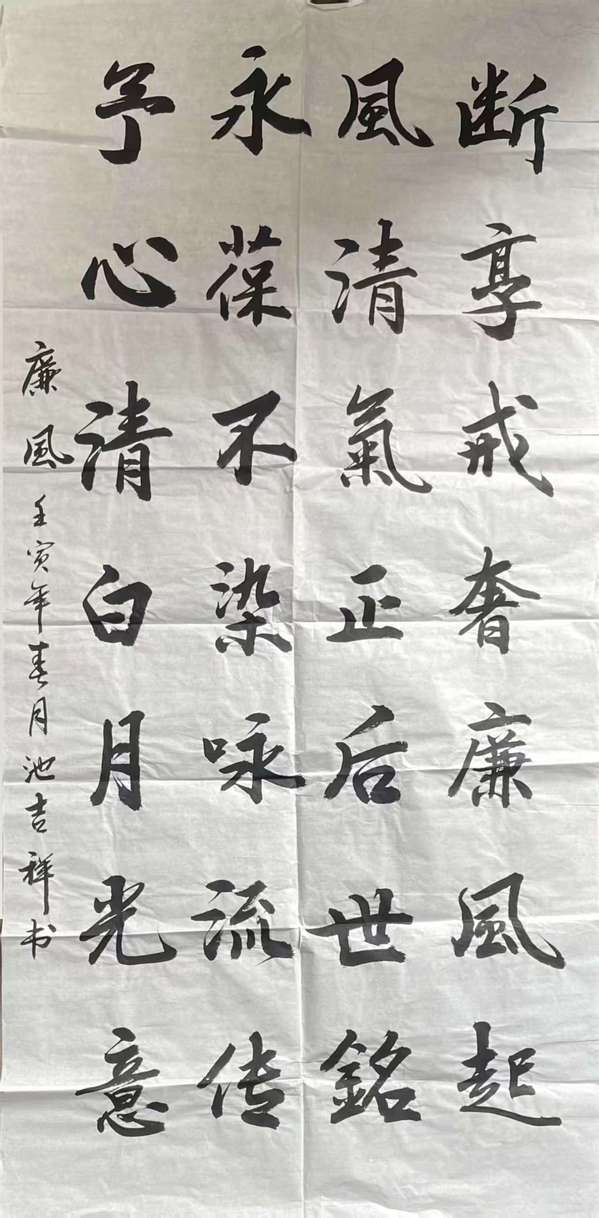 断享戒奢廉風起
風清氣正后世銘
永葆不染咏流传
予心清白月光意
廉風 壬寅年春月池吉祥书